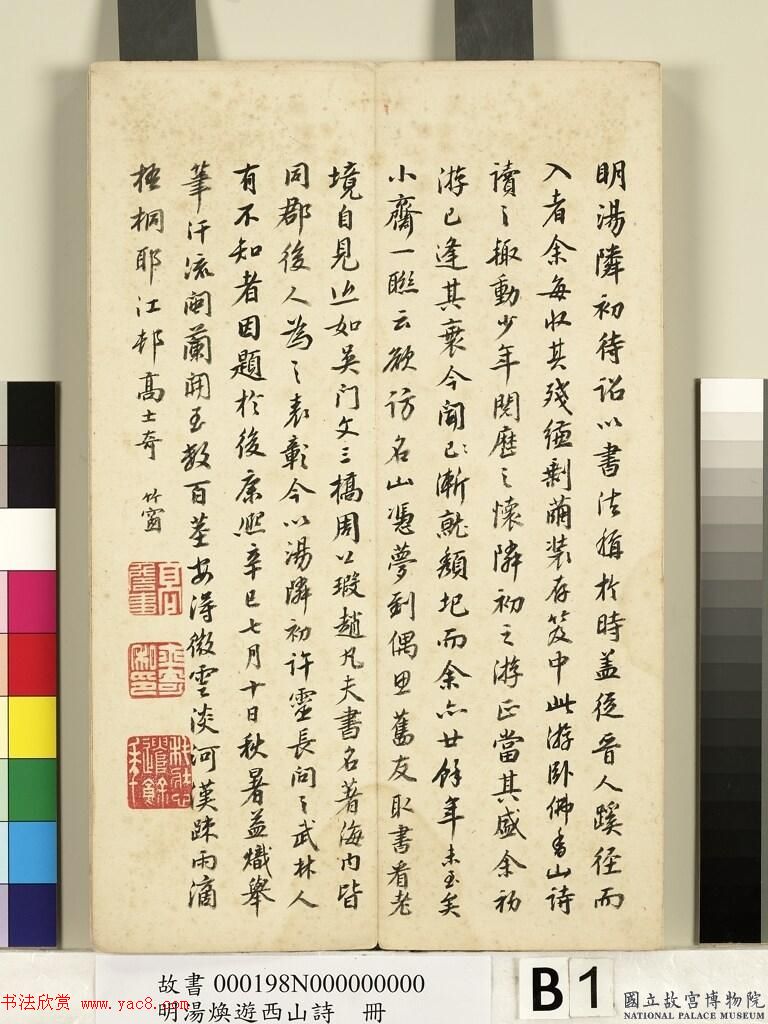 明湯隣初待詔以書法擅於時蓋從晉人蹊徑而
入者余每收其殘縑剩繭装存笈中此游卧佛香山詩
讀之輙動少年閱歷之懷隣初之游正當其盛余初
游已逢其衰今聞已漸就頹圮而余亦廿餘年未至矣
小齋一聯云欲訪名山憑夢到偶思舊友取書看老
境自見止如吳门文三橋周公瑕趙凡夫書名著海内皆
同郡後人為之表彰今以湯隣初許靈長问之武林人
有不知者因題於後康熙辛巳七月十日秋暑益熾舉
筆汗流闼蘭開至数百莖安得微雲淡河漢踈雨滴
梧桐耶江邨高士奇
竹窗
故書 000198N000000000
明湯煥遊西山詩 冊
B1
國立故宮博物院
NATIONAL PALACE MUSEUM
书法欣赏 www.yac8.com